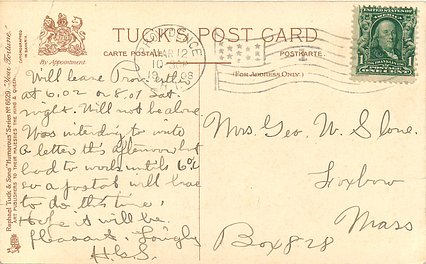 TUCK'S POST CARD
CARTE POSTALE
POSTKARTE.
(FOR ADDRESS ONLY.)
By Appointment.
Raphael Tuck & Sons' "Humorous" Series No 6029 "Your Fortune."
ART PUBLISHERS TO THEIR MAJESTIES THE KING & QUEEN
MAR 12
10
1908
1 1
Will leave Prov. either
at 6.02 or 8.01 Sat.
night. Will not be alone
Was intending to write
a letter this afternoon but
had to work until 6
so a postal will have
to do this time,
Hope it will be
pleasant.
H.S.S.
Mrs. Geo. W. Slone.
Foxboro
Mass
Box 828